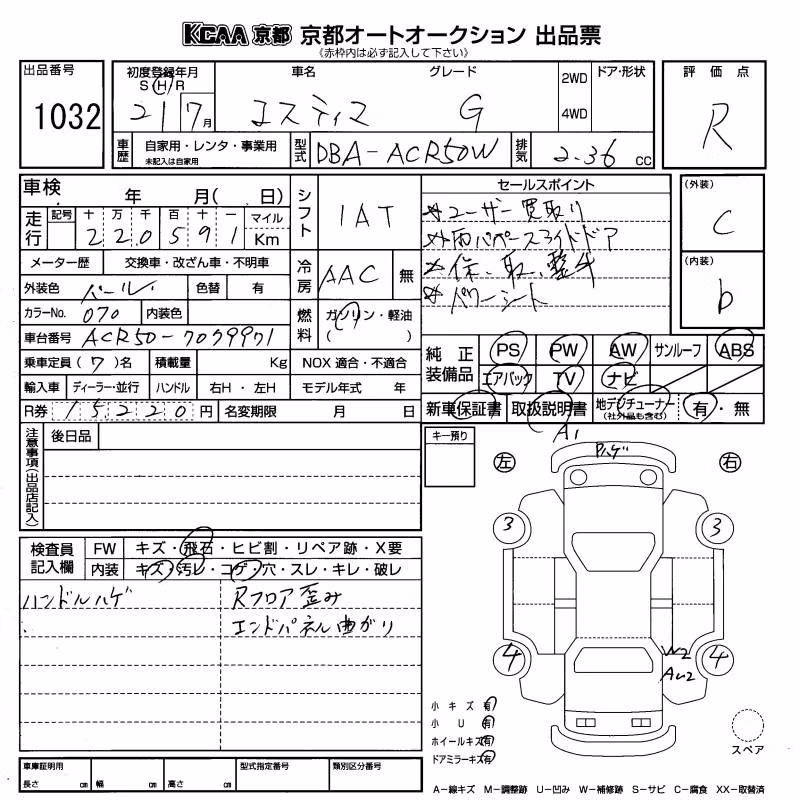 KCAA 京都 京都オートオークション 出品票
《赤枠内は必ず記入して下さい》
出品番号 初度登録年月 車名 グレード 2WD ドア・形状 評価点
S H R
1032 21 7月 エスティマ G 4WD R
車歴 自家用・レンタ・事業用 型式 DBA-ACR50W 排気 2.36 cc
未記入は自家用
車検 年 月( 日) シフト IAT セールスポイント (外装)
走行 記号 十 万 千 百 十 一 マイル ☆ユーザー買取り C
2 2 0 5 9 1 Km ☆両パワースライドドア
メーター歴 交換車・改ざん車・不明車 冷房 AAC 無 ☆保、取、整付 (内装)
外装色 パール 色替 有 ☆パワーシート b
カラーNo. 070 内装色 燃料 ガソリン・軽油
車台番号 ACR50-7099971 ( )
乗車定員 (7)名 積載量 Kg NOX 適合・不適合 純正装備品 PS PW AW サンルーフ ABS
輸入車 ディーラー・並行 ハンドル 右H・左H モデル年式 年 エアバック TV ナビ
R券 15220円 名変期限 月 日 新車保証書 取扱説明書 地デジチューナー 有・無
(社外品も含む)
注意事項(出品店記入) 後日品 キー預り A1
Pハゲ
左 右
3 3
検査員記入欄 FW キズ・飛石・ヒビ割・リペア跡・X要
内装 キズ・汚レ・コゲ・穴・スレ・キレ・破レ
ハンドルハゲ Rフロア歪み
エンドパネル曲がり
4 W2 4
AU2
小キズ 有
小U 有
ホイールキズ 有
ドアミラーキズ 有
スペア
車庫証明用 型式指定番号 類別区分番号
長さ cm 幅 cm 高さ cm
A-線キズ M-調整跡 U-凹み W-補修跡 S-サビ C-腐食 XX-取替済